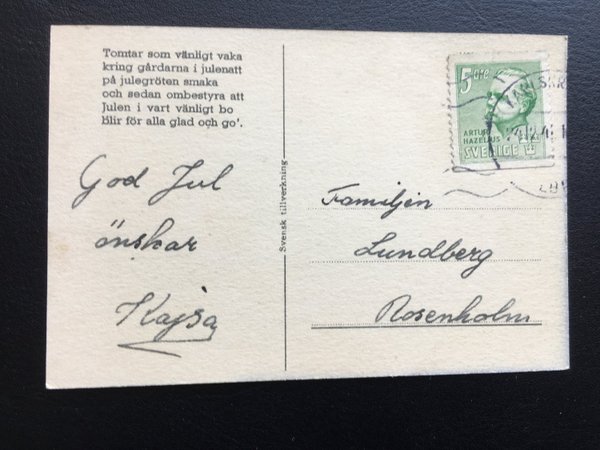 Tomtar som vänligt vaka
kring gårdarna i julenatt
på julegröten smaka
och sedan ombestyra att
Julen i vart vänligt bo
Blir för alla glad och go'.
God Jul
önskar
Kajsa
Svensk tillverkning
5 ÖRE
ARTUR
HAZELIUS
SVERIGE
Familjen
Lundberg
Rosenholm